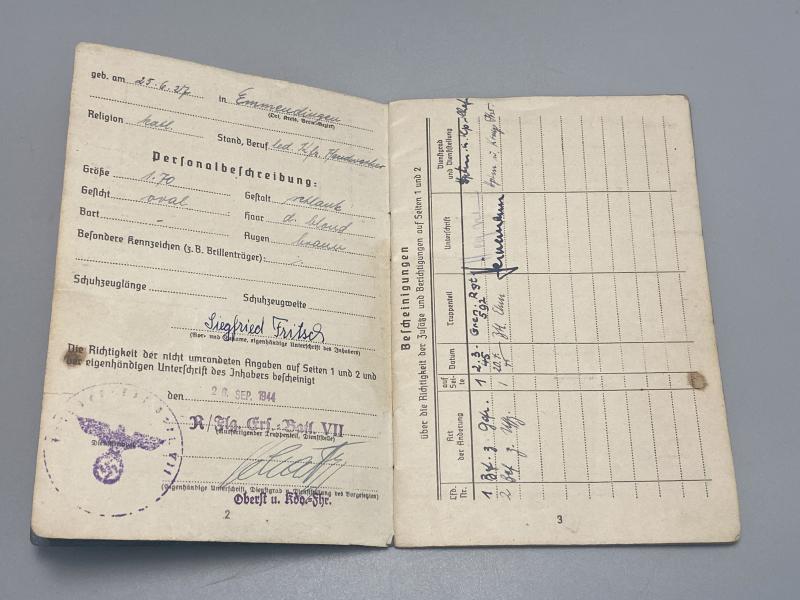 geb. am 25.6.27 in Emmendingen
(Ort, Kreis, Verw.-Bezirk)
Religion kath. Stand, Beruf led. Kfz. Handwerker
Personalbeschreibung:
Größe 1.70 Gestalt schlank
Gesicht oval Haar d. blond
Bart - Augen braun
Besondere Kennzeichen (z. B. Brillenträger):
Schuhzeuglänge Schuhzeugweite
Siegfried Fritsch
(Vor- und Zuname, eigenhändige Unterschrift des Inhabers)
Die Richtigkeit der nicht umrandeten Angaben auf Seiten 1 und 2 und
der eigenhändigen Unterschrift des Inhabers bescheinigt
den 26. SEP. 1944
R/Flg. Ers.-Batl. VII
(Ausfertigender Truppenteil, Dienststelle)
(Eigenhändige Unterschrift, Dienstgrad u. Dienststellung des Vorgesetzten)
Oberst u. Kdo.-Fhr.
2
Bescheinigungen
über die Richtigkeit der Zusätze und Berichtigungen auf Seiten 1 und 2
Lfd. Nr.
Art der Änderung
auf Seite
Datum
Truppenteil
Unterschrift
Dienstgrad und Dienststellung
1 Bef. z. Gefr. 1 2.3.45 Gren. Rgt 592
2 Bef. z. Uffz. 1
3